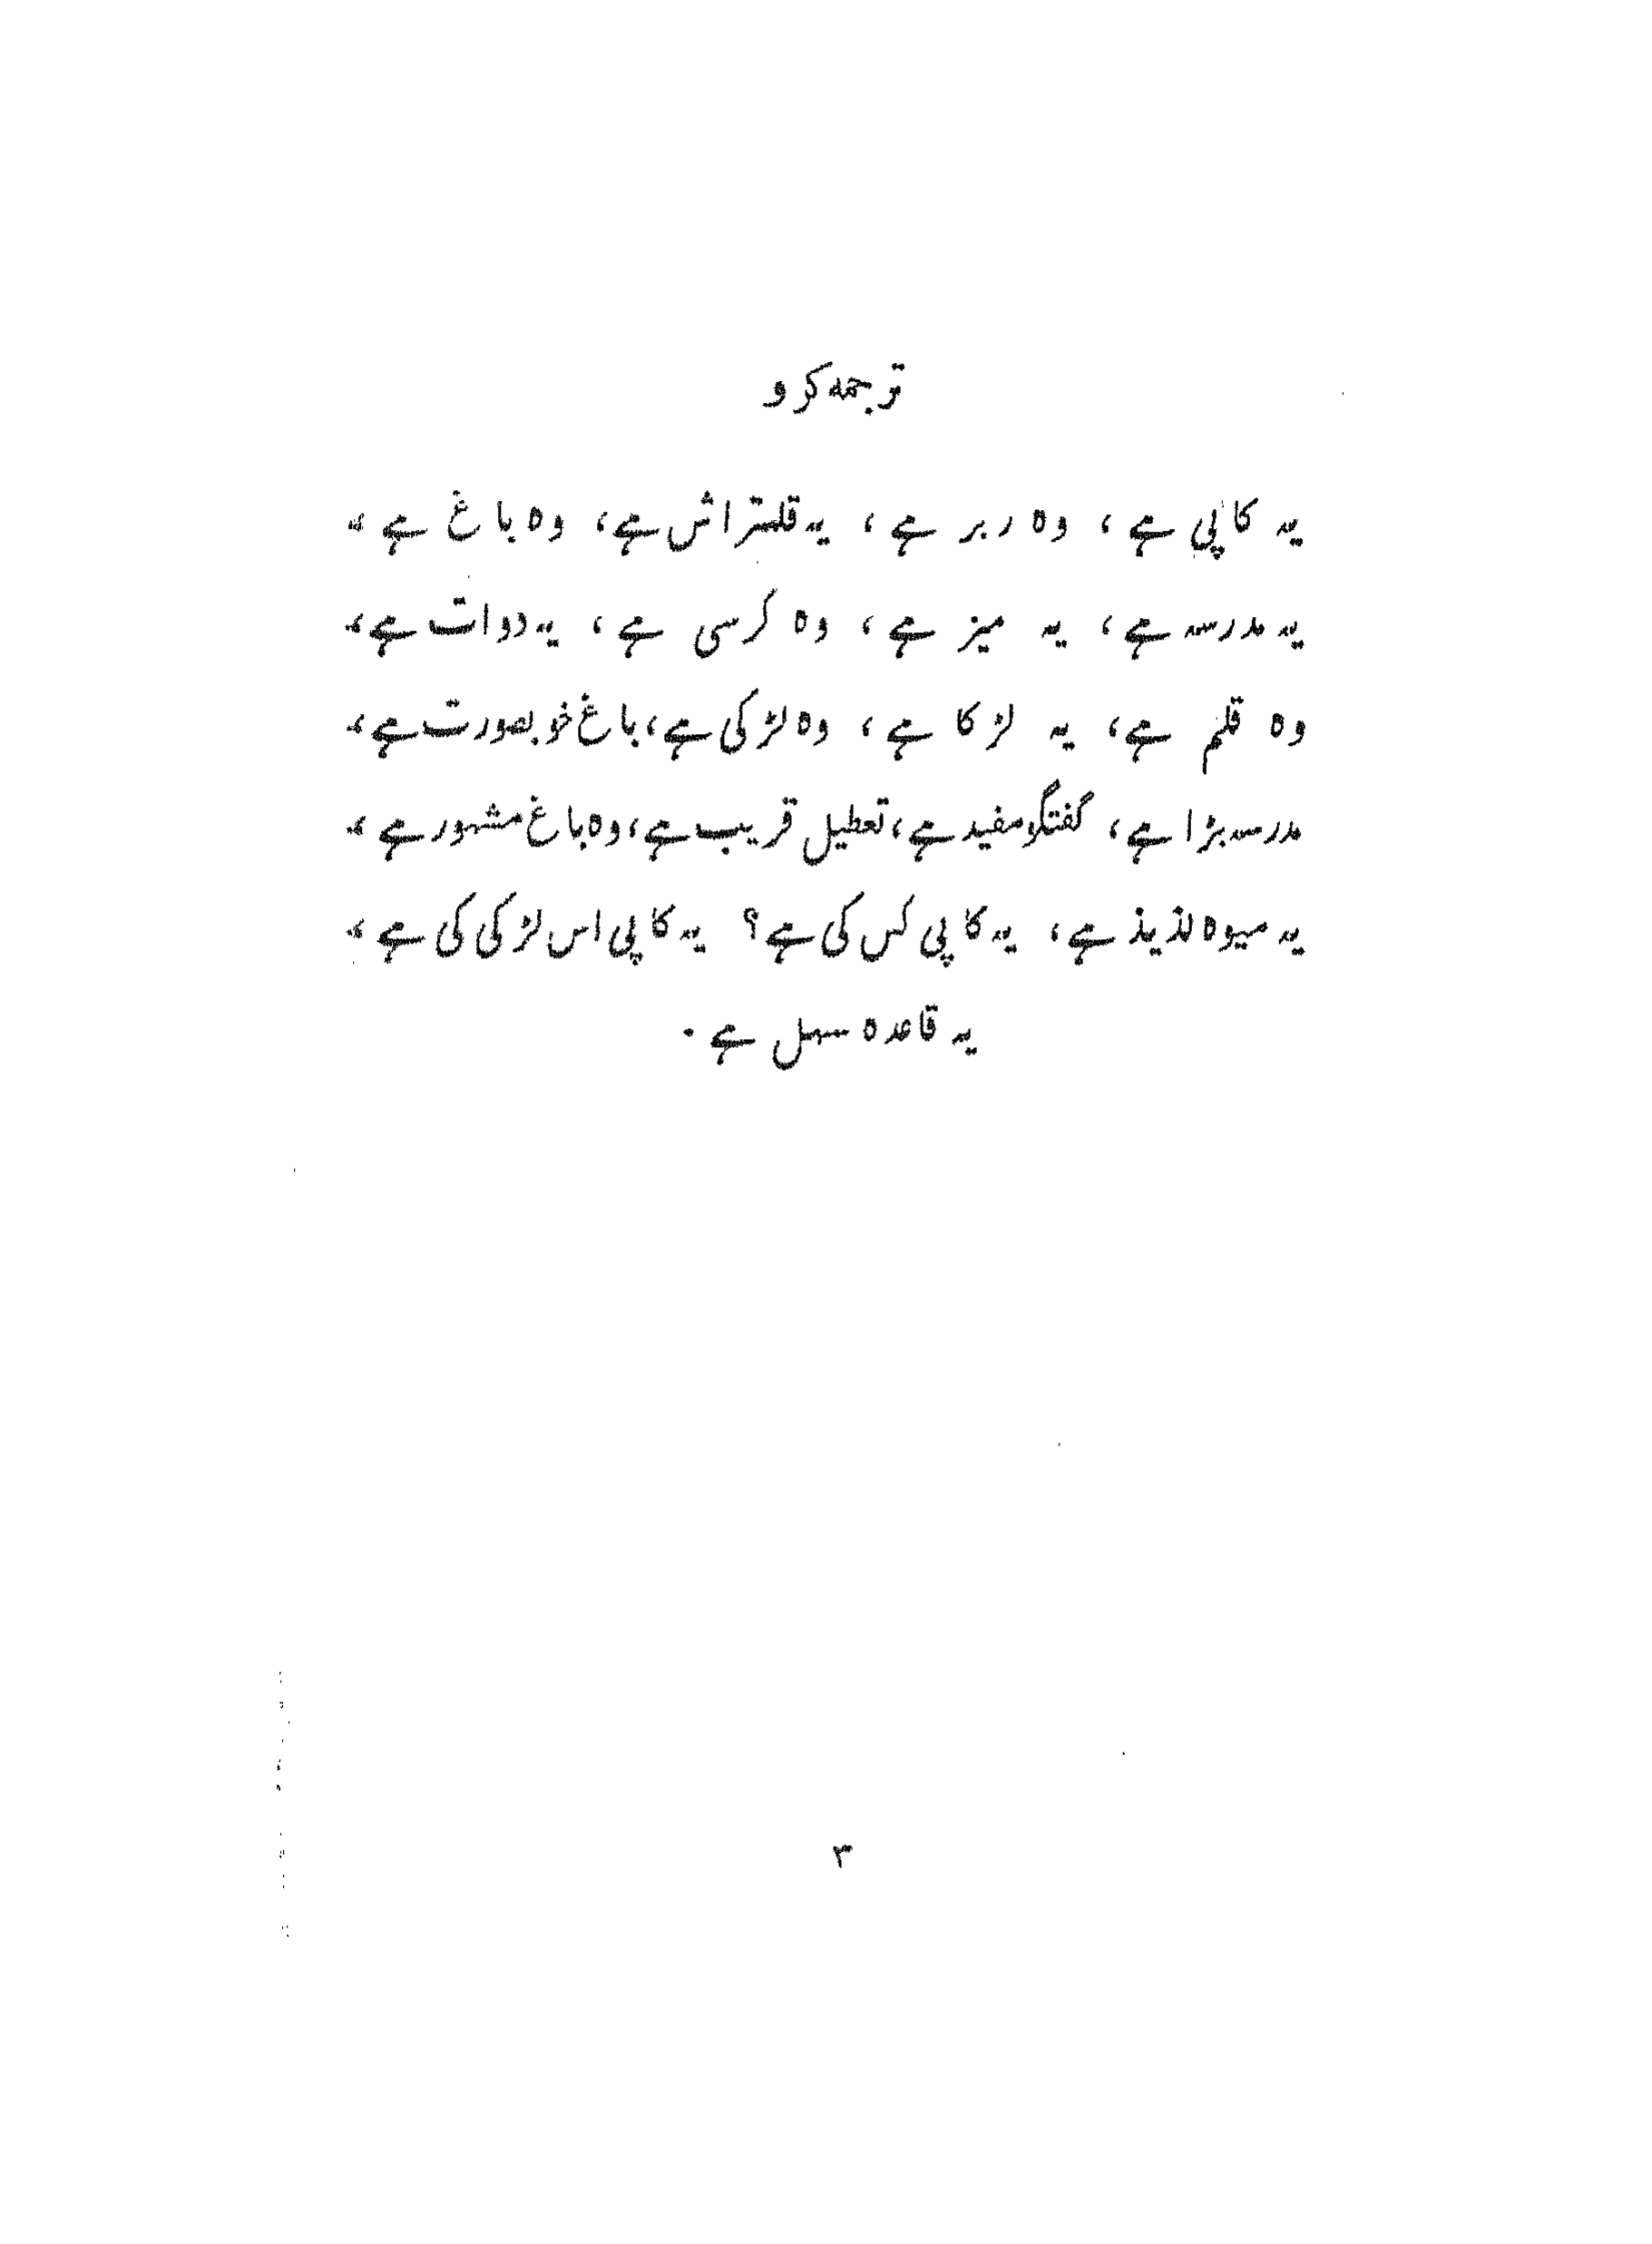 ترجمہ کرو
یہ کاپی ہے، وہ ربر ہے، یہ قلمتراش ہے، وہ باغ ہے،
یہ مدرسہ ہے، یہ میز ہے، وہ کرسی ہے، یہ دوات ہے،
وہ قلم ہے، یہ لڑکا ہے، وہ لڑکی ہے، باغ خوبصورت ہے،
مدرسہ بڑا ہے، گفتگو مفید ہے، تعطیل قریب ہے، وہ باغ مشہور ہے،
یہ میوہ لذیذ ہے، یہ کاپی کس کی ہے؟ یہ کاپی اس لڑکی کی ہے،
یہ قاعدہ سہل ہے۔
۳